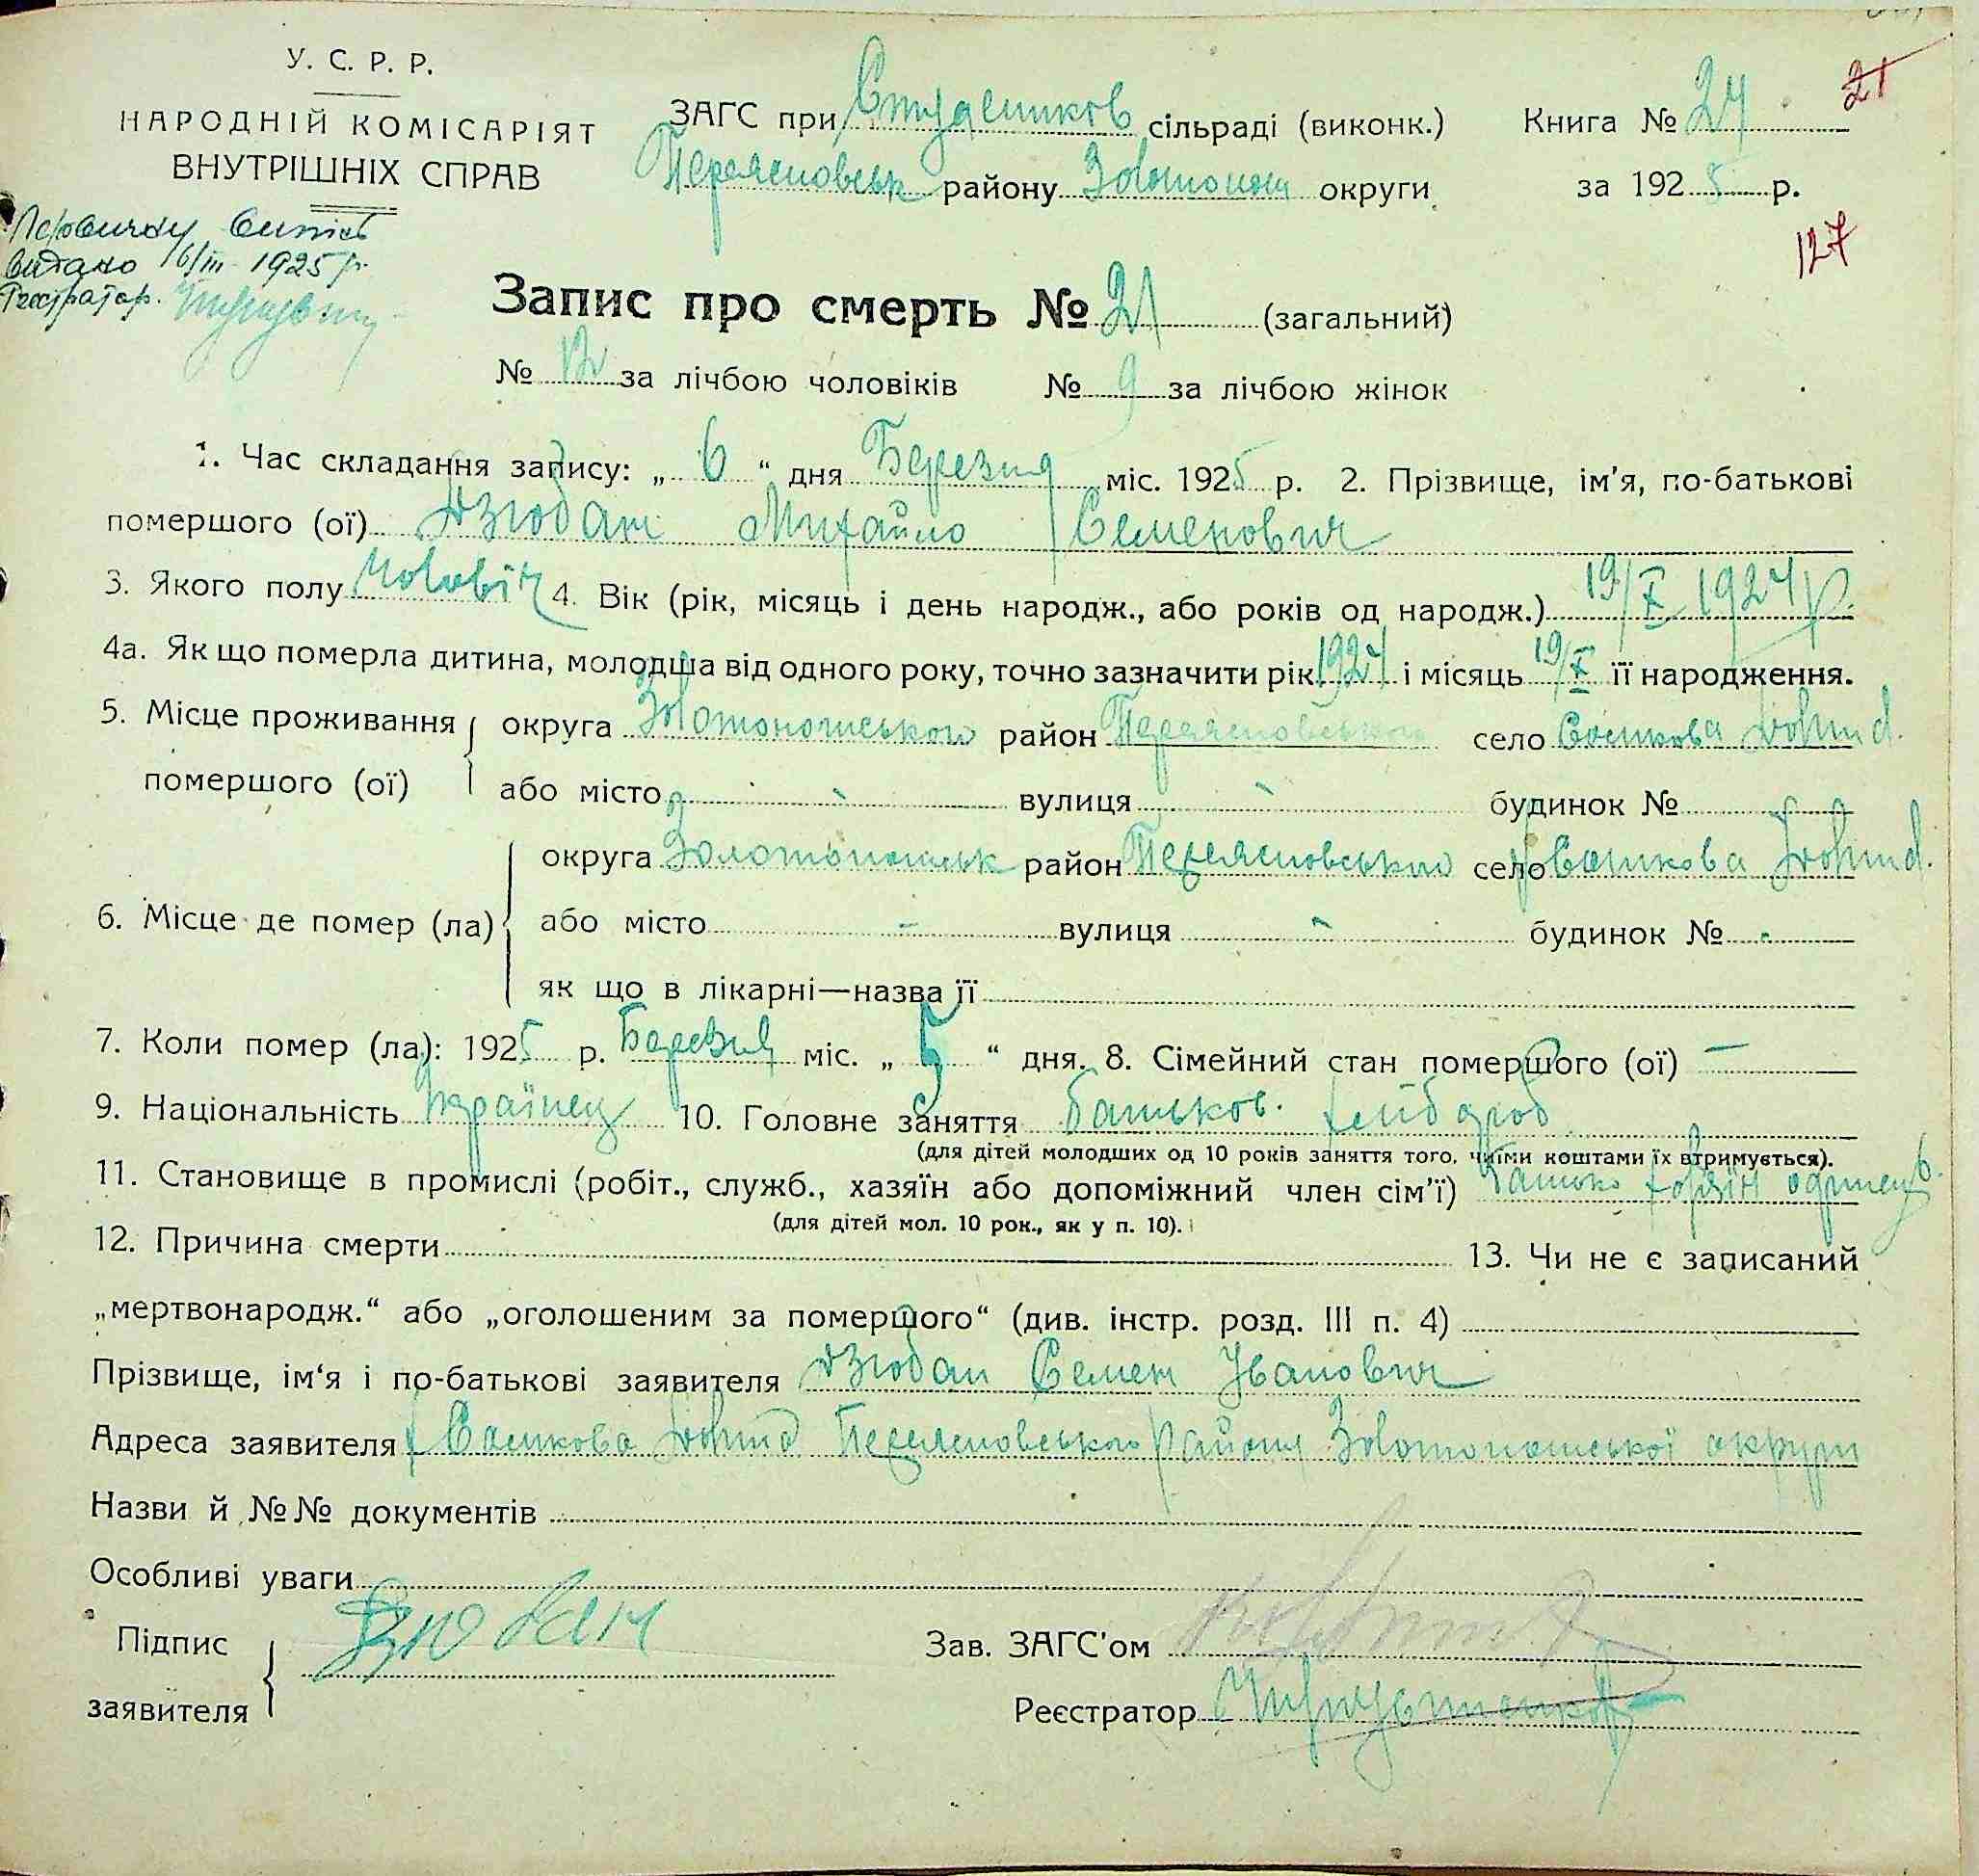 У. С. Р. Р.
НАРОДНІЙ КОМІСАРІЯТ
ВНУТРІШНІХ СПРАВ
ЗАГС при Студеников сільраді (виконк.)
Переясловськ району Золотонош округи
Книга № 24 21
за 1925 р.
127
Первичну випись
видано 6/III 1925 р.
Реєстратор.
Запис про смерть № 21 (загальний)
№ 12 за лічбою чоловіків № 9 за лічбою жінок
1. Час складання запису: „ 6 “ дня Березня міс. 1925 р. 2. Прізвище, ім'я, по-батькові
помершого (ої) Дзюбан Михайло Семенович
3. Якого полу чоловіч 4. Вік (рік, місяць і день народж., або років од народж.) 19/X 1924 р.
4а. Як що померла дитина, молодша від одного року, точно зазначити рік 1924 і місяць 19/X її народження.
5. Місце проживання помершого (ої) округа Золотоношського район Переясловського село
або місто - вулиця - будинок №
6. Місце де помер (ла) округа Золотоношськ район Переясловського село
або місто - вулиця - будинок № -
як що в лікарні—назва її
7. Коли помер (ла): 1925 р. Березня міс. „ 5 “ дня. 8. Сімейний стан помершого (ої) —
9. Національність Українец 10. Головне заняття батьков. хлібороб
(для дітей молодших од 10 років заняття того, чиїми коштами їх втримується).
11. Становище в промислі (робіт., служб., хазяїн або допоміжний член сім'ї) батько хазяїн
(для дітей мол. 10 рок., як у п. 10).
12. Причина смерти 13. Чи не є записаний
„мертвонародж.“ або „оголошеним за помершого“ (див. інстр. розд. III п. 4)
Прізвище, ім'я і по-батькові заявителя Дзюбан Семен Іванович
Адреса заявителя Переясловського району Золотоношської округи
Назви й №№ документів
Особливі уваги
Підпис заявителя Дзюбан
Зав. ЗАГС'ом
Реєстратор